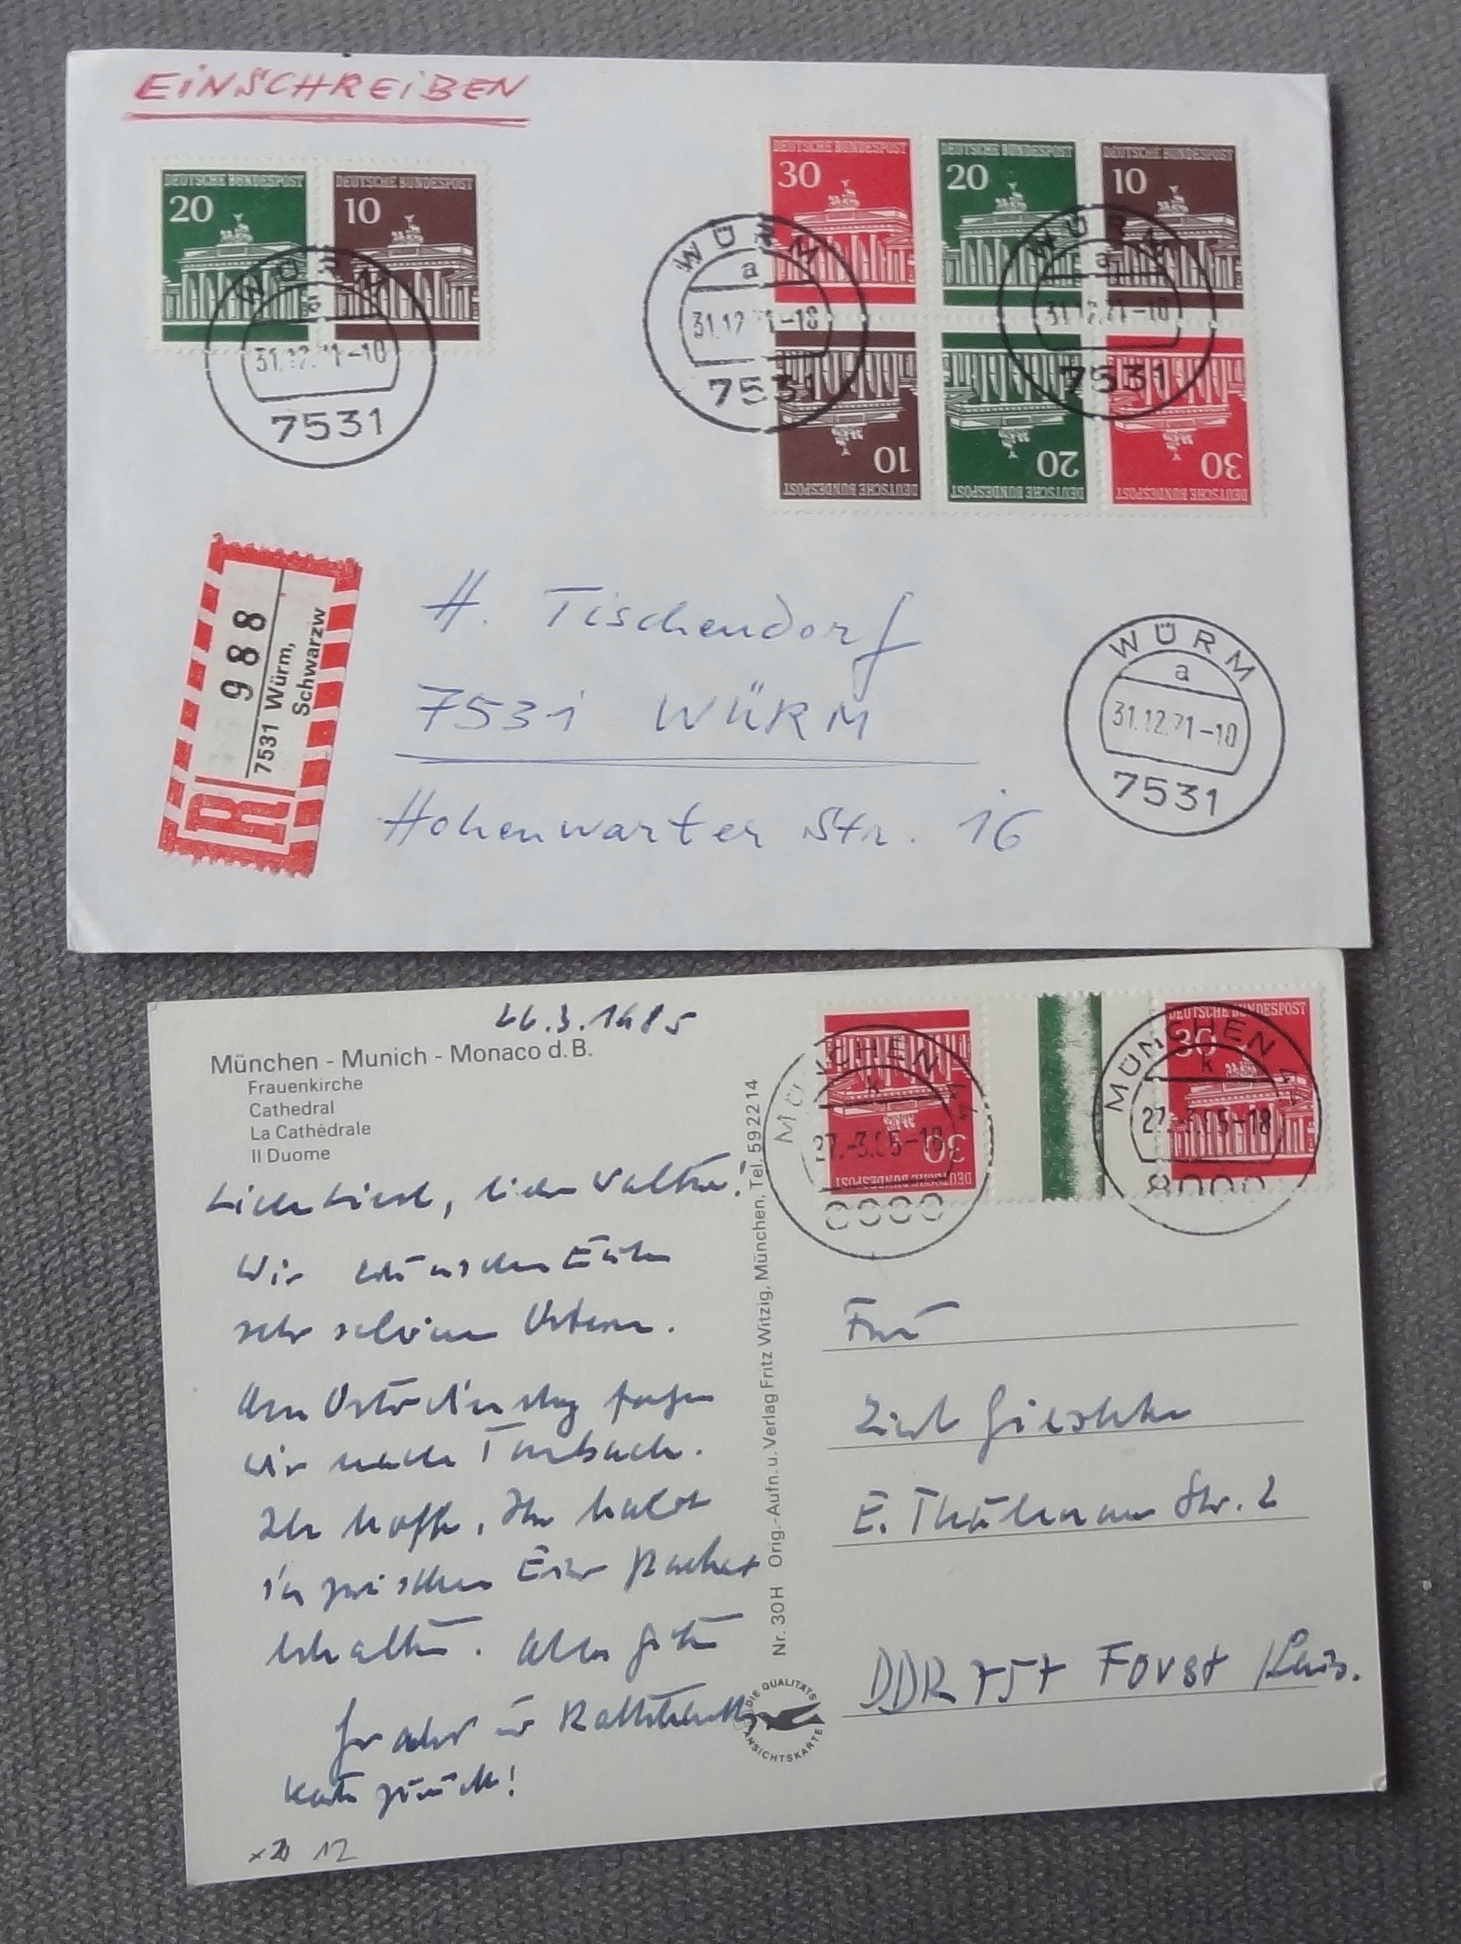 EINSCHREIBEN
DEUTSCHE BUNDESPOST
20
DEUTSCHE BUNDESPOST
10
DEUTSCHE BUNDESPOST
30
DEUTSCHE BUNDESPOST
20
DEUTSCHE BUNDESPOST
10
10
DEUTSCHE BUNDESPOST
20
DEUTSCHE BUNDESPOST
30
DEUTSCHE BUNDESPOST
WÜRM
a
31.12.71-10
7531
WÜRM
a
31.12.71-18
7531
WÜRM
a
31.12.71-10
7531
R
988
7531 Würm,
Schwarzw
H. Tischendorf
7531 WÜRM
Hohenwarter Str. 16
WÜRM
a
31.12.71-10
7531
München - Munich - Monaco d. B.
Frauenkirche
Cathedral
La Cathédrale
Il Duome
Wir wünschen Euch
sehr schöne Ostern.
Am Osterdienstag
wir nach
Ich hoffe, Ihr habt
inzwischen Euer Packet
erhalten. Alles Gute
zurück!
x20 12
Nr. 30 H Orig.-Aufn. u. Verlag Fritz Witzig, München, Tel. 59 22 14
DIE QUALITÄTS
ANSICHTSKARTE
30
DEUTSCHE BUNDESPOST
DEUTSCHE BUNDESPOST
30
MÜNCHEN 44
k
27.-3.85-18
8000
MÜNCHEN 44
k
27.-3.85-18
8000
E. Thälmann Str. 2
DDR 757 Forst /Laus.